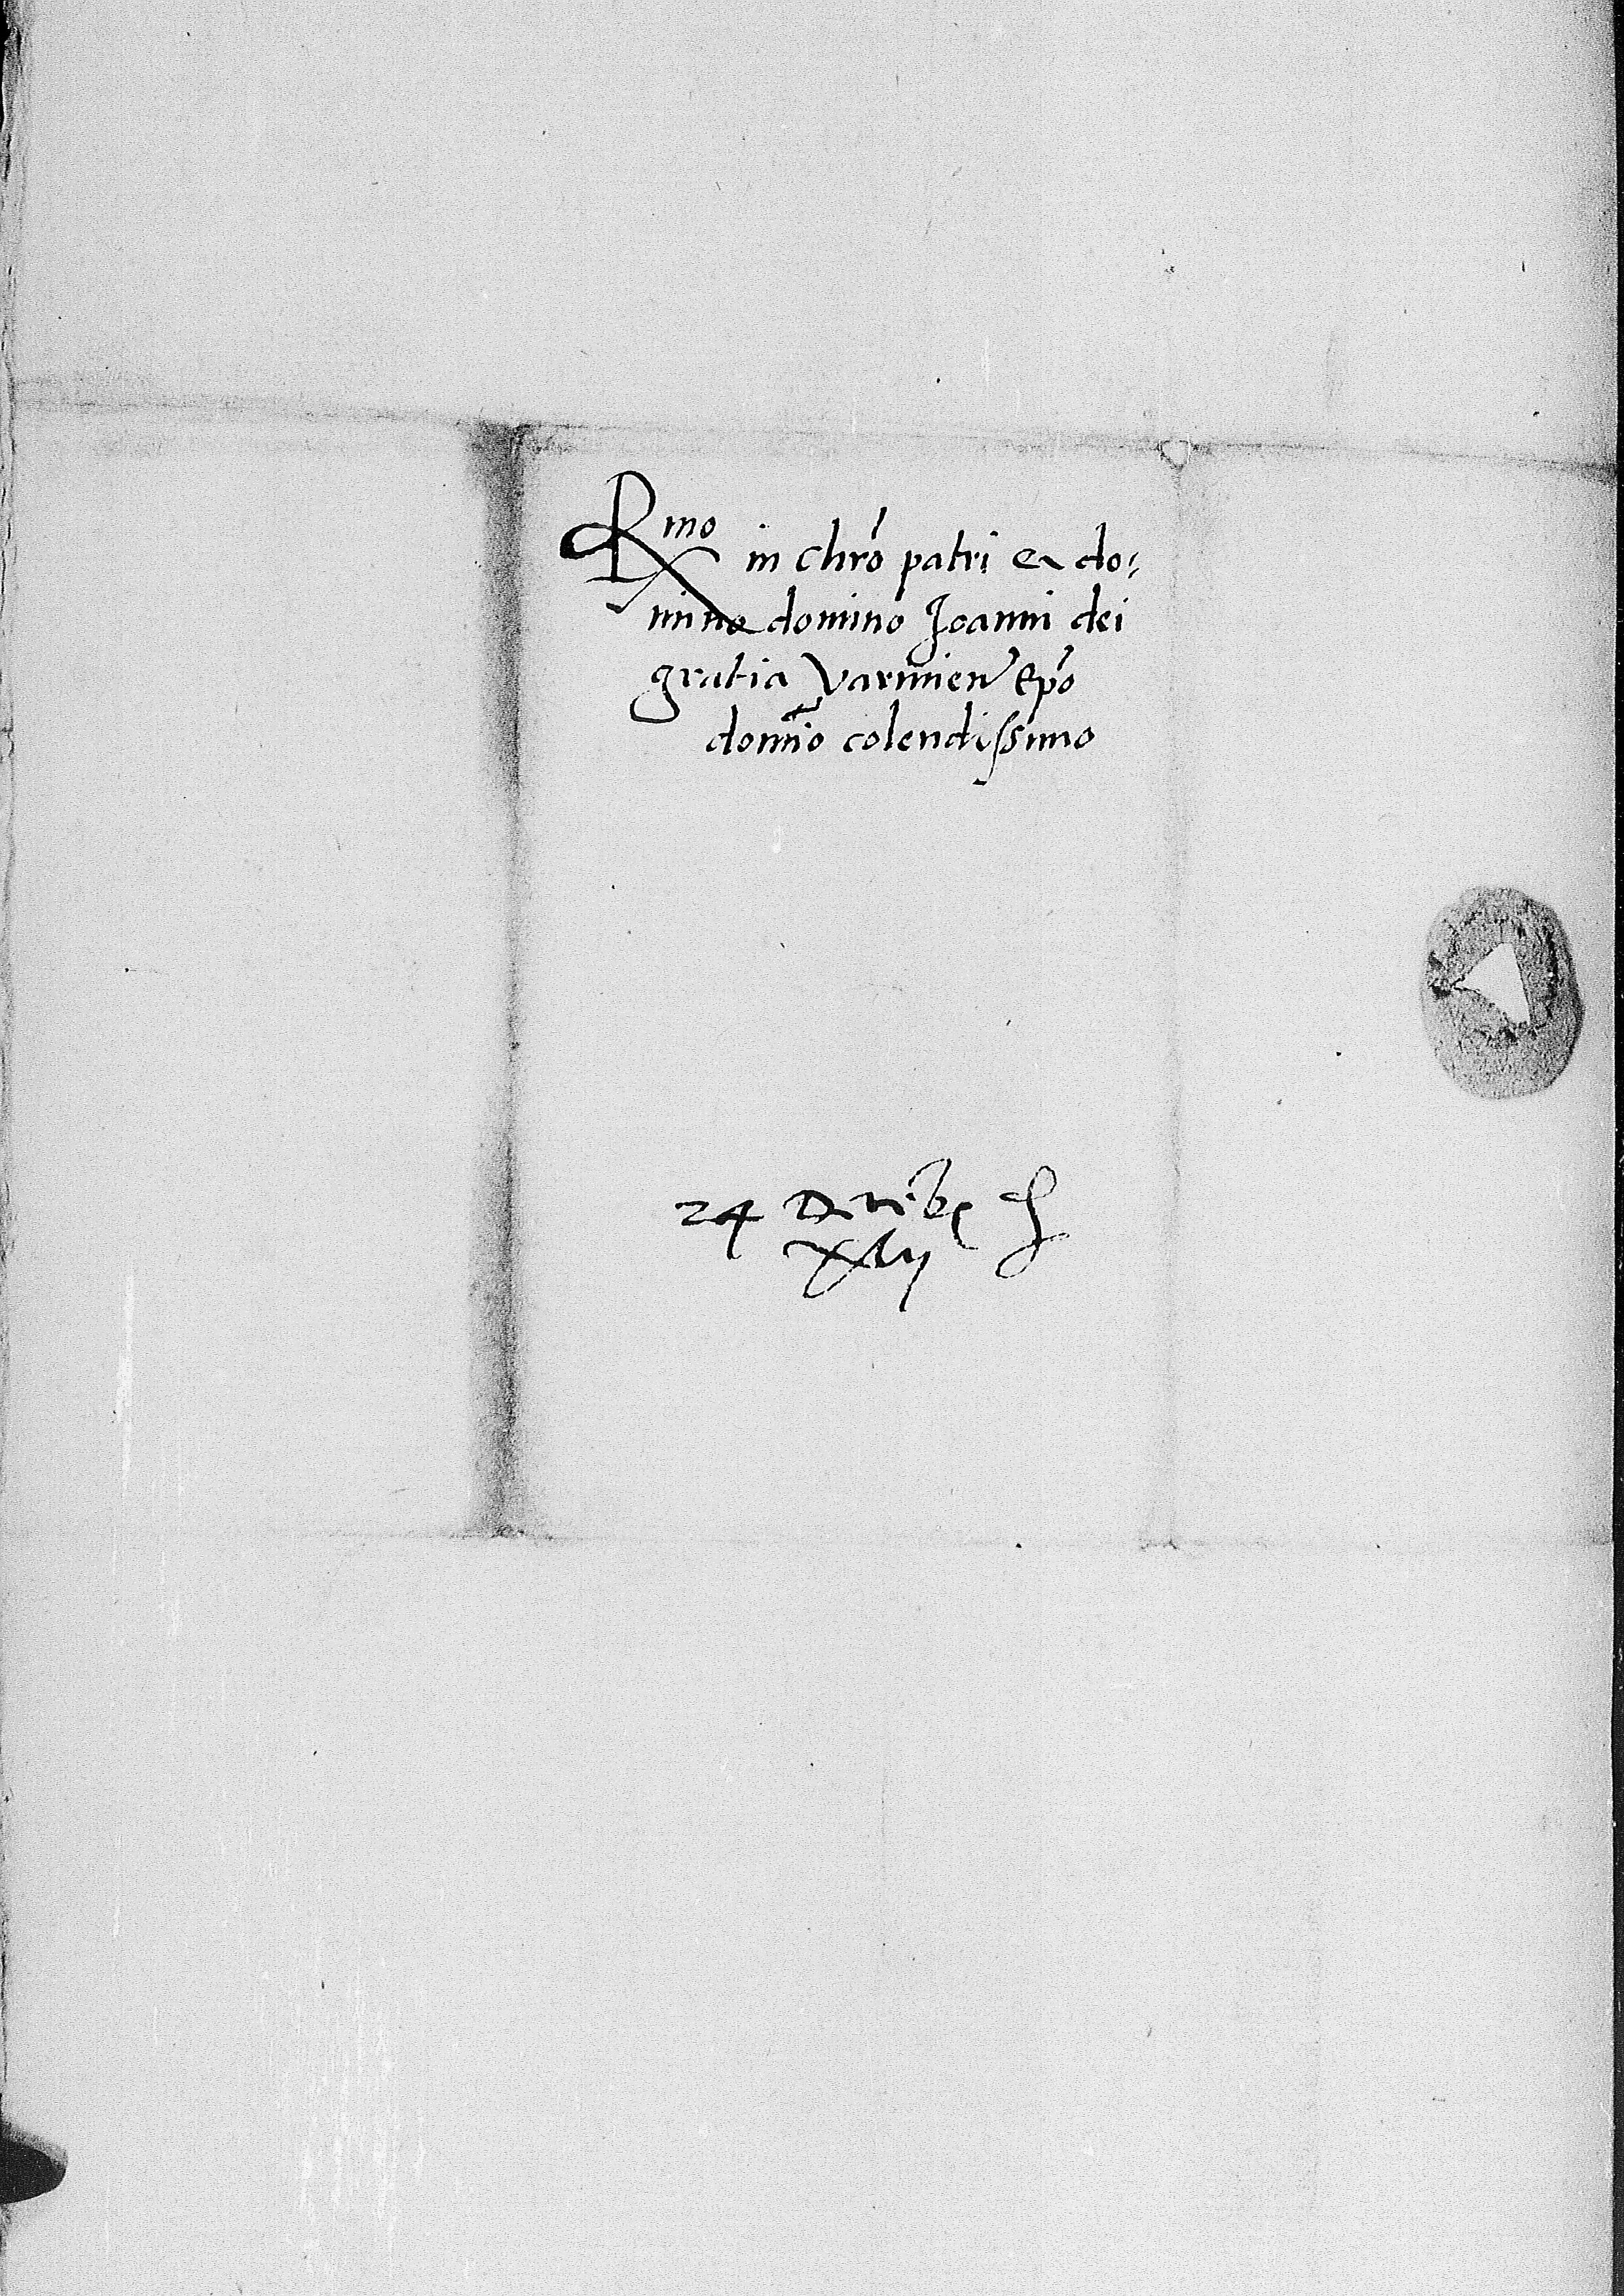 Rmo in Chro patri et do-
mino domino Joanni dei
gratia Varmien Epo
domino colendissimo
24 Decembr
xlij